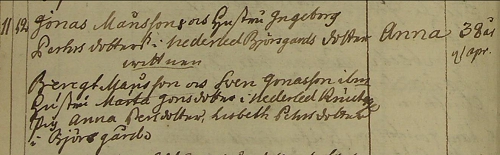 11 12 Jonas Månsson, ors Hustru Ingeborg
Pehrs dotters i nederled Björsgards dotter Anna 38 al
wittnen 9/ apr.
Bengt Månsson ors Sven Jonasson ibm
Hustru Marta Jons dotter i nederled
Pig Anna Pers dotter, Lisbeth Pehrs dotter
i Björsgärde